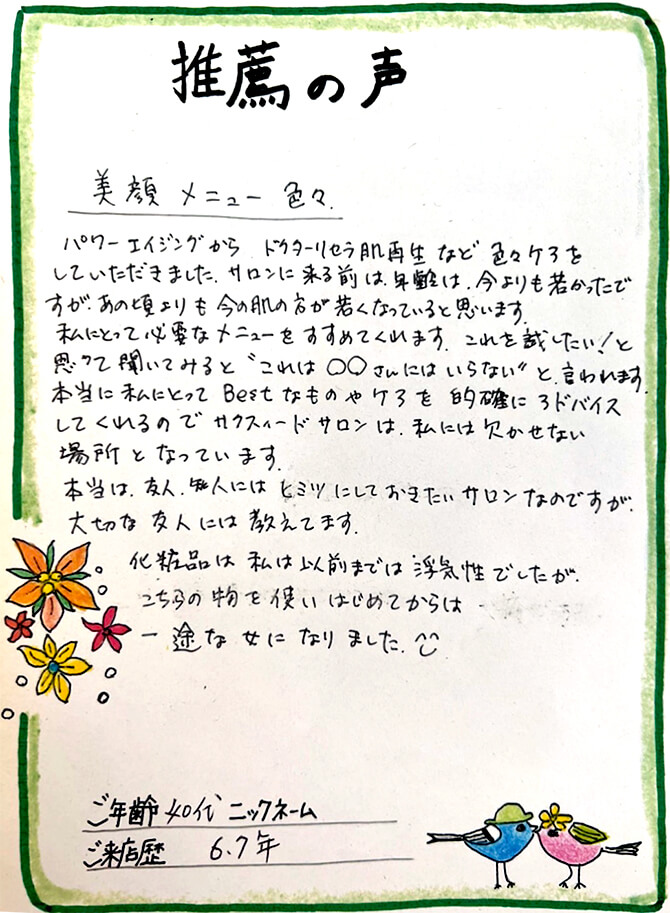 推薦の声
美顔メニュー 色々.
パワーエイジングから ドクターリセラ肌再生など 色々ケアを
していただきました. サロンに来る前は.年齢は.今よりも若かったで
すが.あの頃よりも今の肌の方が若くなっていると思います.
私にとって必要なメニューをすすめてくれます. これを試したい!と
思って聞いてみると"これは〇〇さんにはいらない"と.言われます.
本当に私にとってBestなものやケアを 的確にアドバイス
してくれるので サクスィードサロンは.私には欠かせない
場所となっています.
本当は.友人.知人にはヒミツにしておきたいサロンなのですが.
大切な友人には教えてます.
化粧品は私は以前までは浮気性でしたが.
こちらの物を使いはじめてからは
一途な女になりました.
ご年齢 40代 ニックネーム
ご来店歴 6.7年